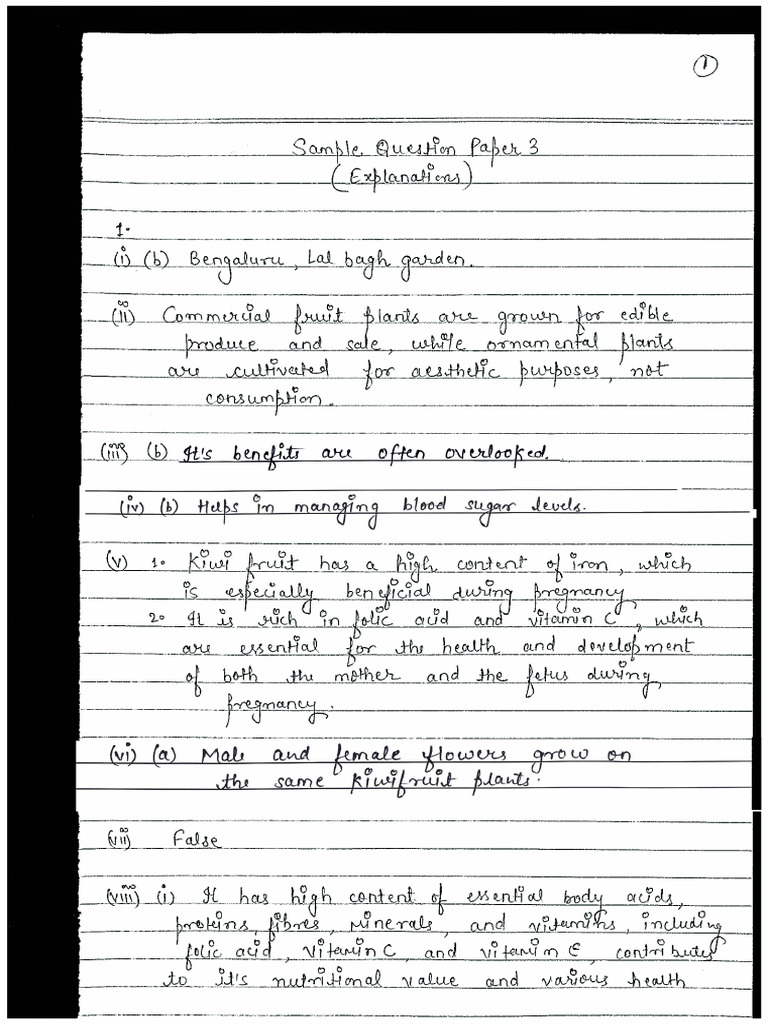 1
Sample Question Paper 3
(Explanations)
1.
(i) (b) Bengaluru, Lal bagh garden.
(ii) Commercial fruit plants are grown for edible
produce and sale, while ornamental plants
are cultivated for aesthetic purposes, not
consumption.
(iii) (b) It's benefits are often overlooked.
(iv) (b) Helps in managing blood sugar levels.
(v) 1. Kiwi fruit has a high content of iron, which
is especially beneficial during pregnancy
2. It is rich in folic acid and vitamin C, which
are essential for the health and development
of both the mother and the fetus during
pregnancy.
(vi) (a) Male and female flowers grow on
the same kiwifruit plants.
(vii) False
(viii) (i) It has high content of essential body acids,
proteins, fibres, minerals, and vitamins, including
folic acid, vitamin C, and vitamin E, contributes
to it's nutritional value and various health